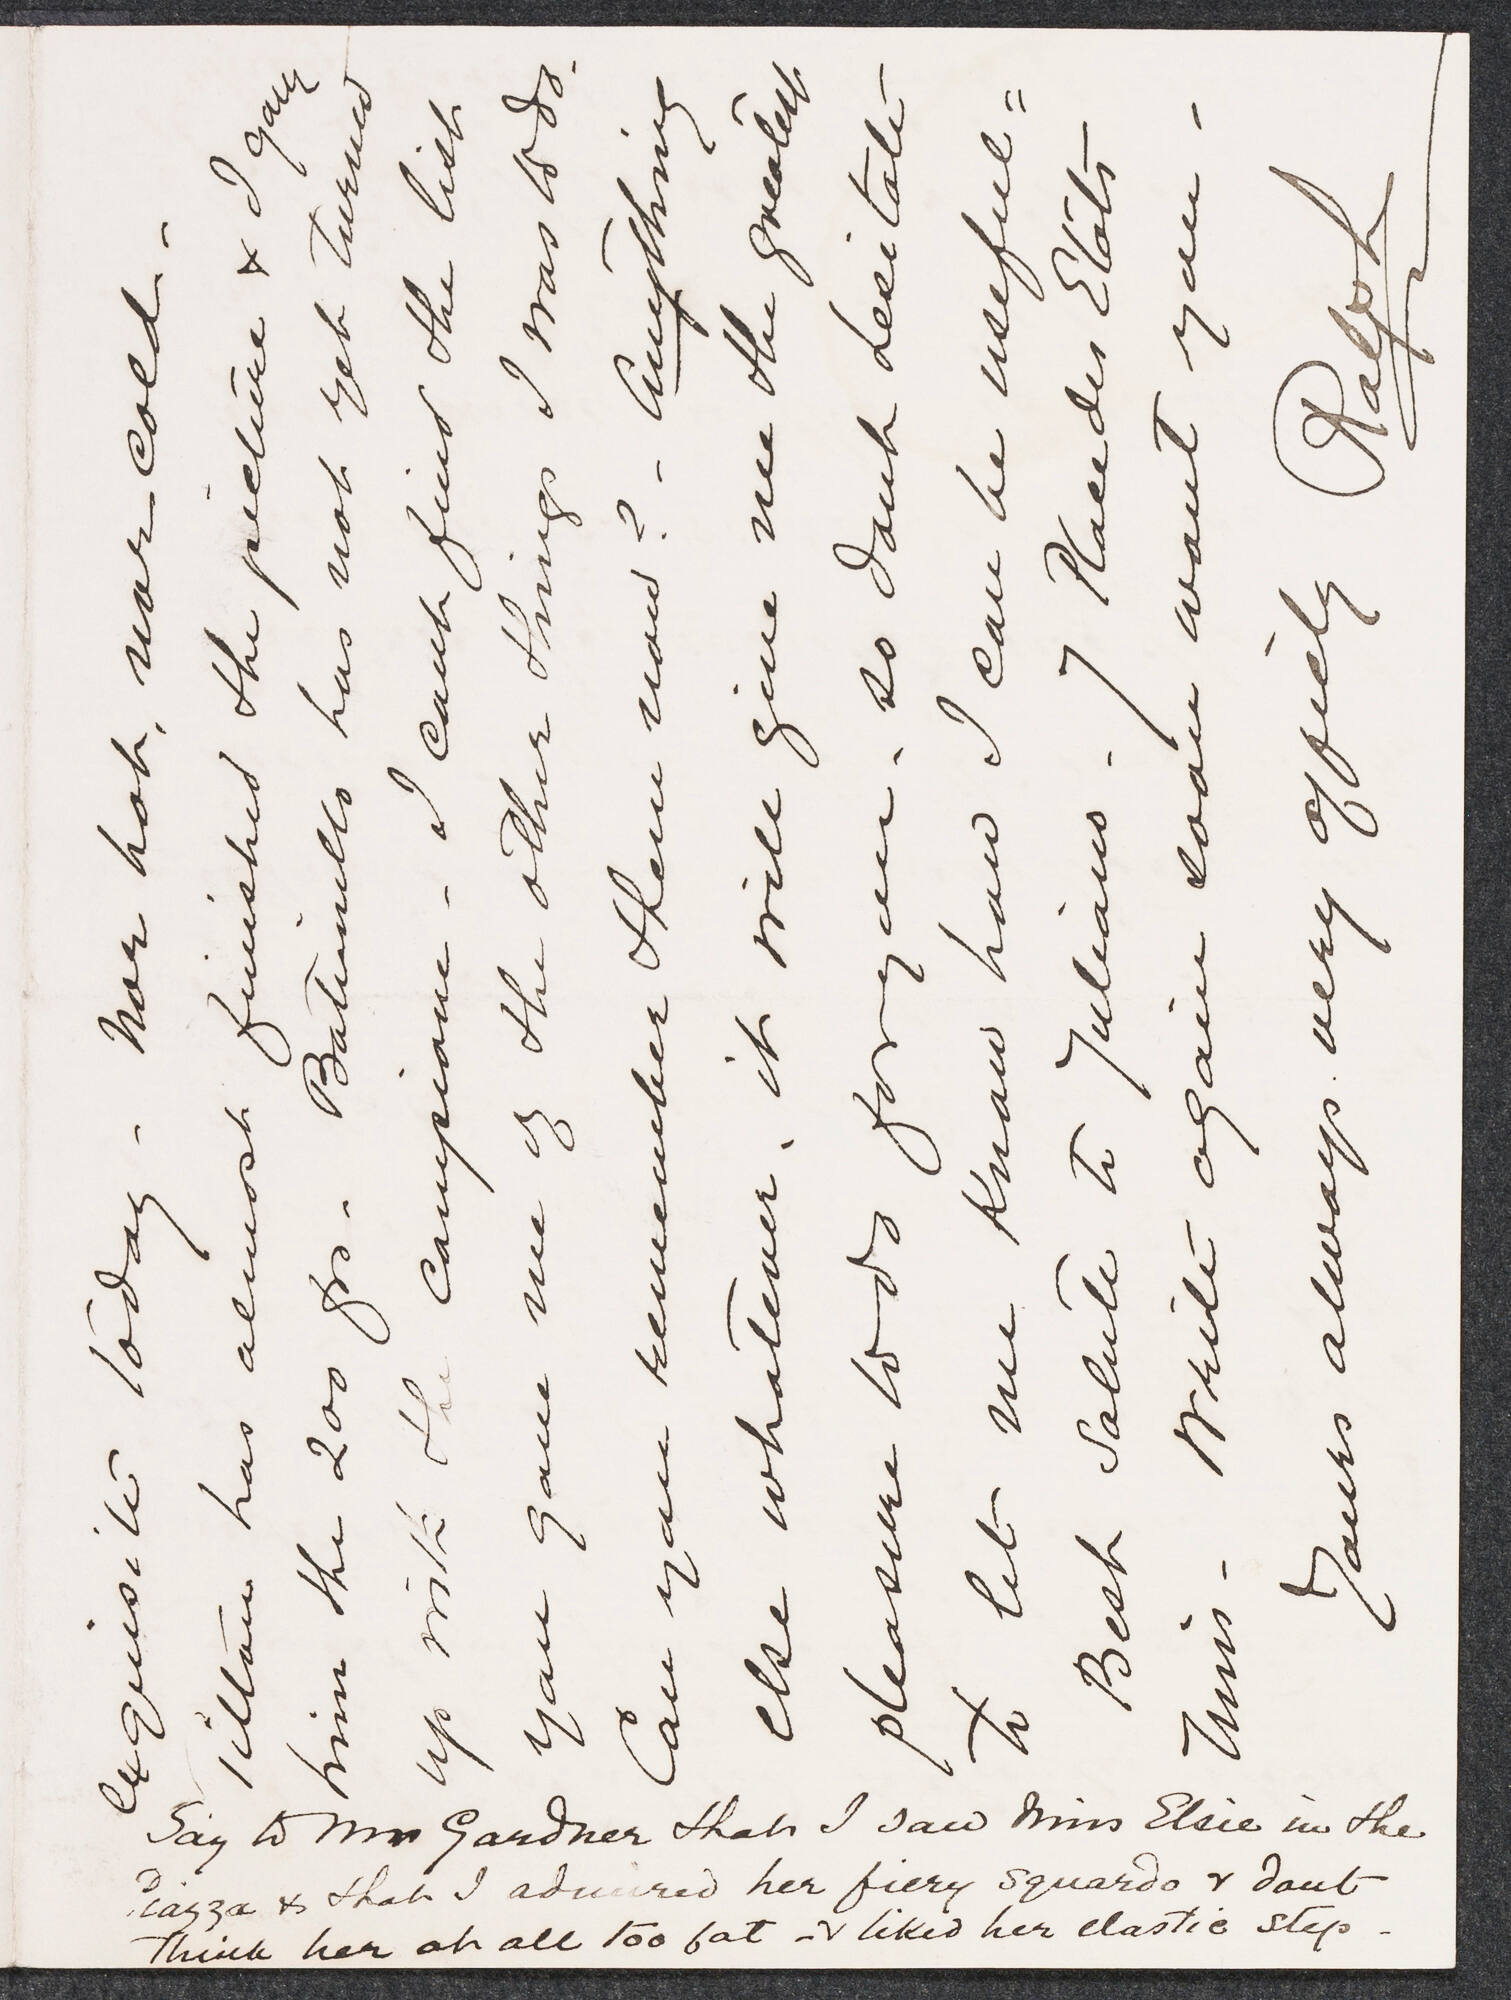 exquisite today - Nor hot, nor cold -
Tilton has almost finished the picture & I gave
him the 200 frs - Batinello has not yet turned
up with the campione - I cant find the list
you gave me of the other things I was to do -
Can you remember them now? - Anything
else whatever, it will give me the greatest
pleasure to do for you - so dont hesitate
to let me know how I can be useful =
Best salute to Juliano - 7 Place des Etats
Unis - Write again soon wont you -
Yours always very affcly Ralph
Say to Mrs Gardner that I saw Miss Elsie in the
Piazza & that I admired her fiery sguardo & dont
think her at all too fat - & liked her elastic step -